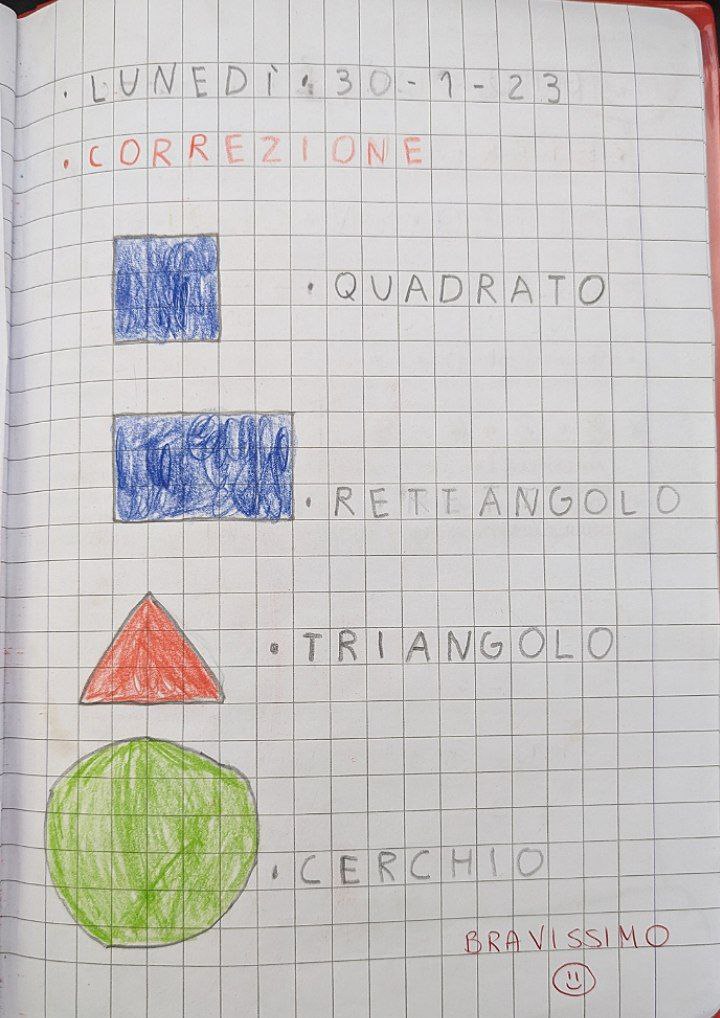 . LUNEDÌ . 30-1-23
. CORREZIONE
. QUADRATO
. RETTANGOLO
. TRIANGOLO
. CERCHIO
BRAVISSIMO